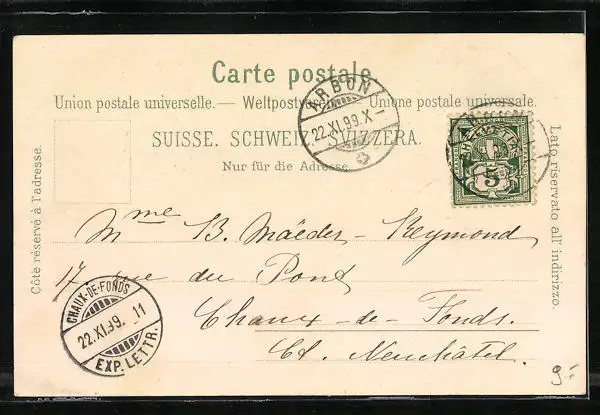 Carte postale.
Union postale universelle. — Weltpostverein — Unione postale universale.
SUISSE. SCHWEIZ. SVIZZERA.
Nur für die Adresse.
Côté réservé à l'adresse.
Lato riservato all' indirizzo.
ARBON
22.XI.99.X–
HELVETIA
5
Mme B. Maëder-Reymond
17 rue du Pont
Chaux-de-Fonds.
Ct. Neuchâtel.
CHAUX-DE-FONDS
22.XI.99. 11
EXP. LETTR.
9.-